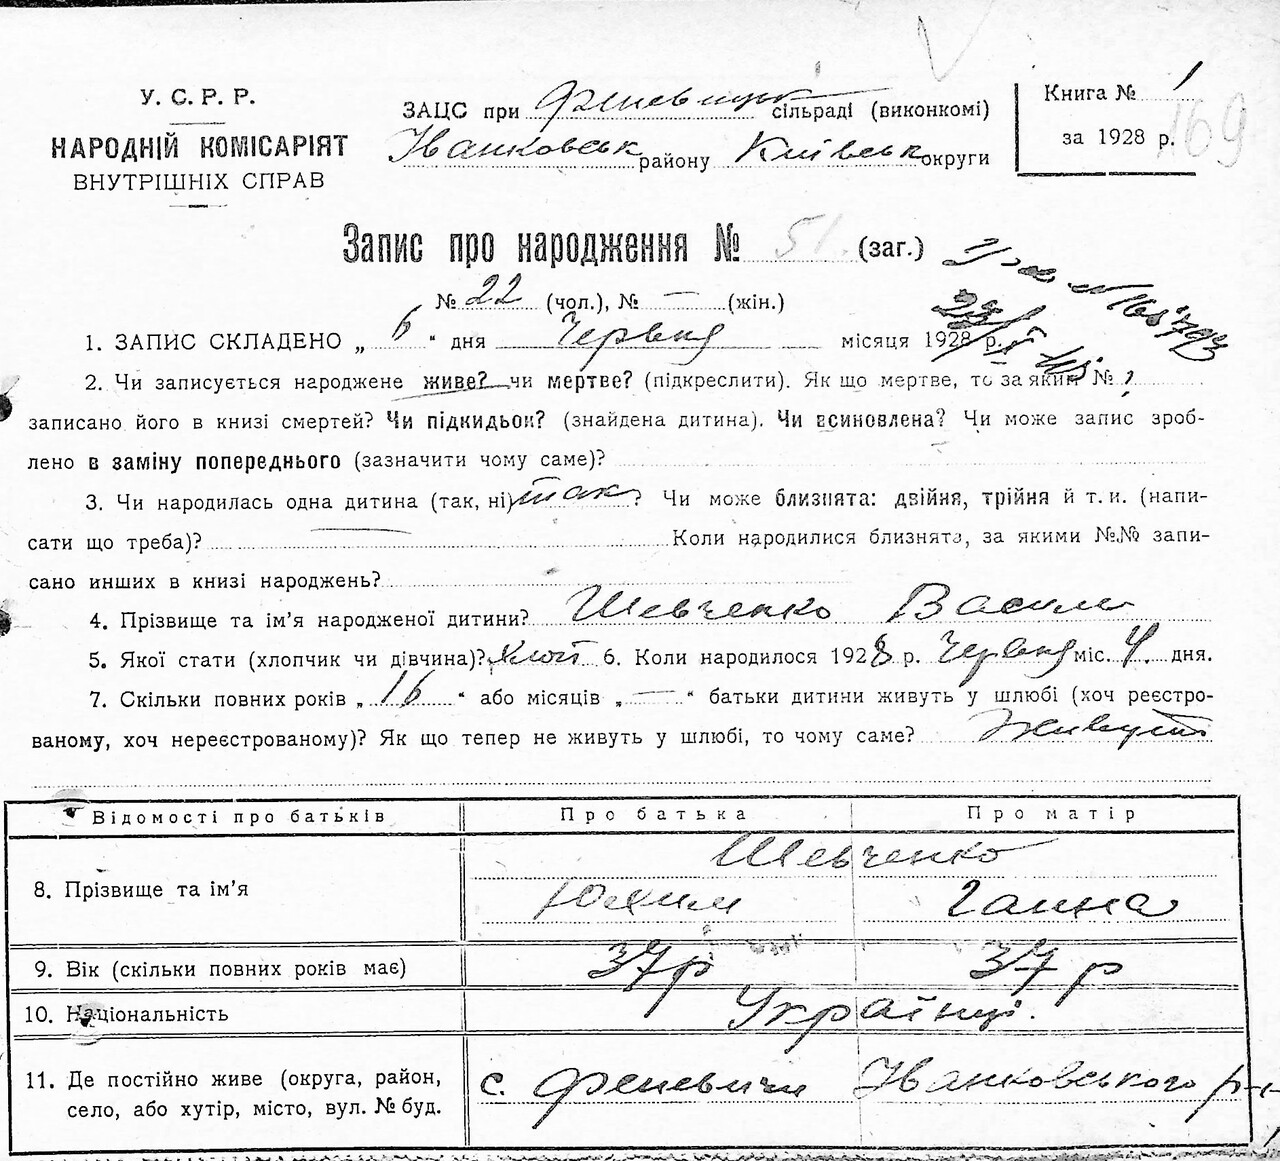 У. С. Р. Р.
НАРОДНІЙ КОМІСАРІЯТ
ВНУТРІШНІХ СПРАВ
ЗАЦС при Феневицьк сільраді (виконкомі)
Іванковськ району Київськ округи
Книга № 1
за 1928 р.
169
Запис про народження № 51. (заг.)
№ 22 (чол.), № — (жін.)
1. ЗАПИС СКЛАДЕНО „ 6 “ дня Червня місяця 1928 р.
2. Чи записується народжене живе? чи мертве? (підкреслити). Як що мертве, то за яким №
записано його в книзі смертей? Чи підкидьок? (знайдена дитина). Чи всиновлена? Чи може запис зроб-
лено в заміну попереднього (зазначити чому саме)?
3. Чи народилась одна дитина (так, ні) так? Чи може близнята: двійня, трійня й т. и. (напи-
сати що треба)? — Коли народилися близнята, за якими №№ запи-
сано инших в книзі народжень?
4. Прізвище та ім'я народженої дитини? Шевченко Василь
5. Якої стати (хлопчик чи дівчина)? хлоп 6. Коли народилося 1928 р. Червня міс. 4. дня.
7. Скільки повних років „ 16 “ або місяців „ — “ батьки дитини живуть у шлюбі (хоч реєстро-
ваному, хоч нереєстрованому)? Як що тепер не живуть у шлюбі, то чому саме? Живуть
Відомості про батьків Про батька Про матір
Шевченко
8. Прізвище та ім'я Юхим Ганна
9. Вік (скільки повних років має) 37 р 37 р
10. Національність Українці.
11. Де постійно живе (округа, район, с. Феневичи Іванковського р-
село, або хутір, місто, вул. № буд.